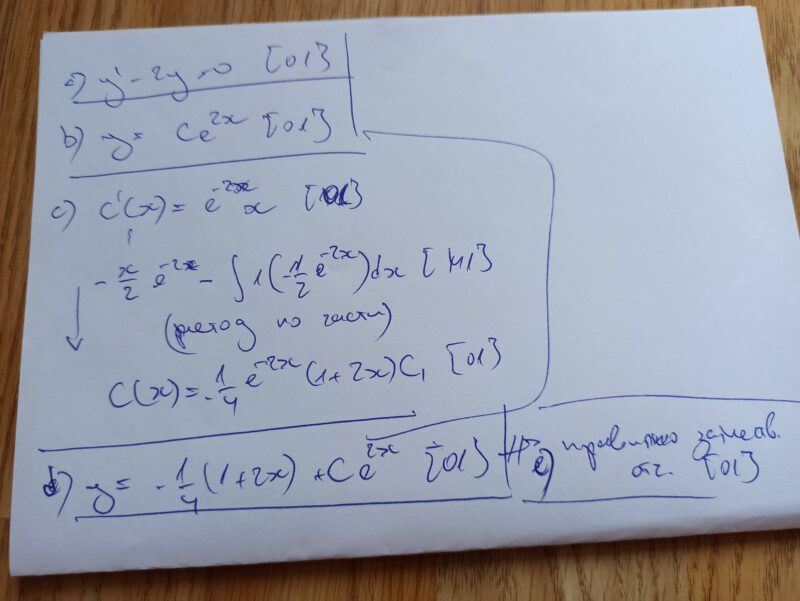 a) y' - 2y = 0 [01]
b) y = Ce^{2x} [01]
c) C'(x) = e^{-2x} x [01]
-x/2 e^{-2x} - ∫ 1(-1/2 e^{-2x})dx [M1]
(метод по части)
C(x) = -1/4 e^{-2x} (1+2x) C₁ [01]
d) y = -1/4 (1+2x) + Ce^{2x} [01]
e) правилно
отг. [01]